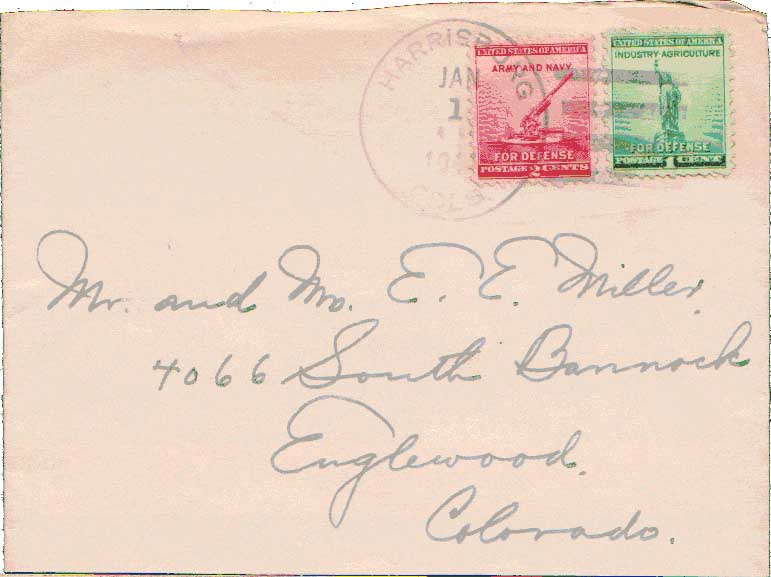 HARRISBURG
JAN
1
COLO.
UNITED STATES OF AMERICA
ARMY AND NAVY
FOR DEFENSE
POSTAGE 2 CENTS
UNITED STATES OF AMERICA
INDUSTRY-AGRICULTURE
FOR DEFENSE
POSTAGE 1 CENT
Mr. and Mrs. E. E. Miller
4066 South Bannock
Englewood.
Colorado.